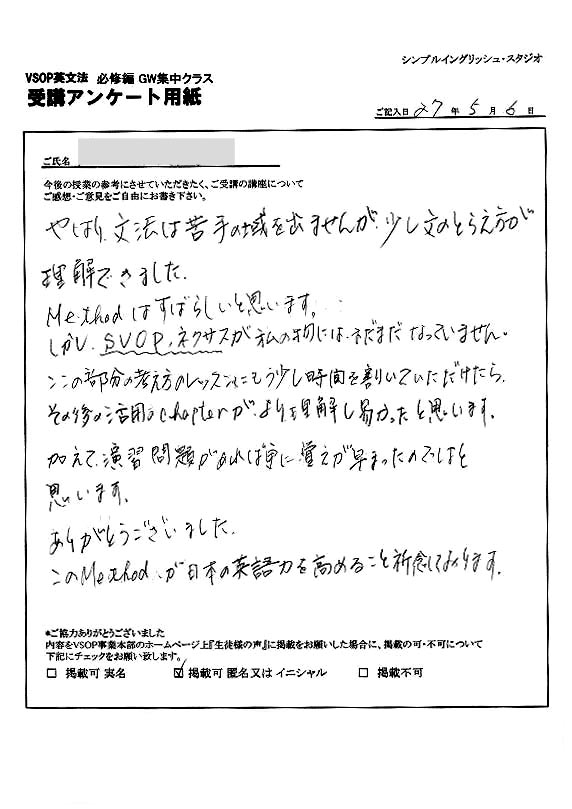 シンプルイングリッシュ・スタジオ
VSOP英文法 必修編 GW集中クラス
受講アンケート用紙
ご記入日 27 年 5 月 6 日
ご氏名
今後の授業の参考にさせていただきたく、ご受講の講座について
ご感想・ご意見をご自由にお書き下さい。
やはり、文法は苦手の域を出ませんが、少し文のとらえ方が
理解できました。
Methodはすばらしいと思います。
しかし、SVOP、ネクサスが私の物には、まだまだなっていません。
ここの部分の考え方のレッスンにもう少し時間を割いていただけたら、
その後の活用のchapterが、より理解し易かったと思います。
加えて、演習問題があれば更に覚えが早まったのではと
思います。
ありがとうございました。
このMethodが日本の英語力を高めること祈念しております。
*ご協力ありがとうございました
内容をVSOP事業本部のホームページ上『生徒様の声』に掲載をお願いした場合に、掲載の可・不可について
下記にチェックをお願い致します。
□ 掲載可 実名 ☑ 掲載可 匿名又は イニシャル □ 掲載不可